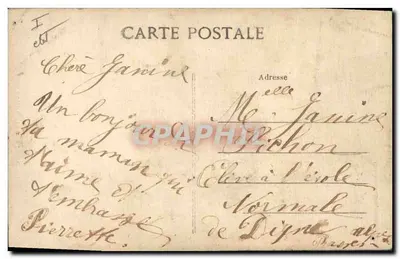 CARTE POSTALE
Chère Janine
Un bonjour de
ta maman qui
t'aime et
t'embrasse
Pierrette.
Adresse
Melle Janine
Pichon
Elève à l'école
Normale
de Digne
Basses Alpes
CPAPHIL.com